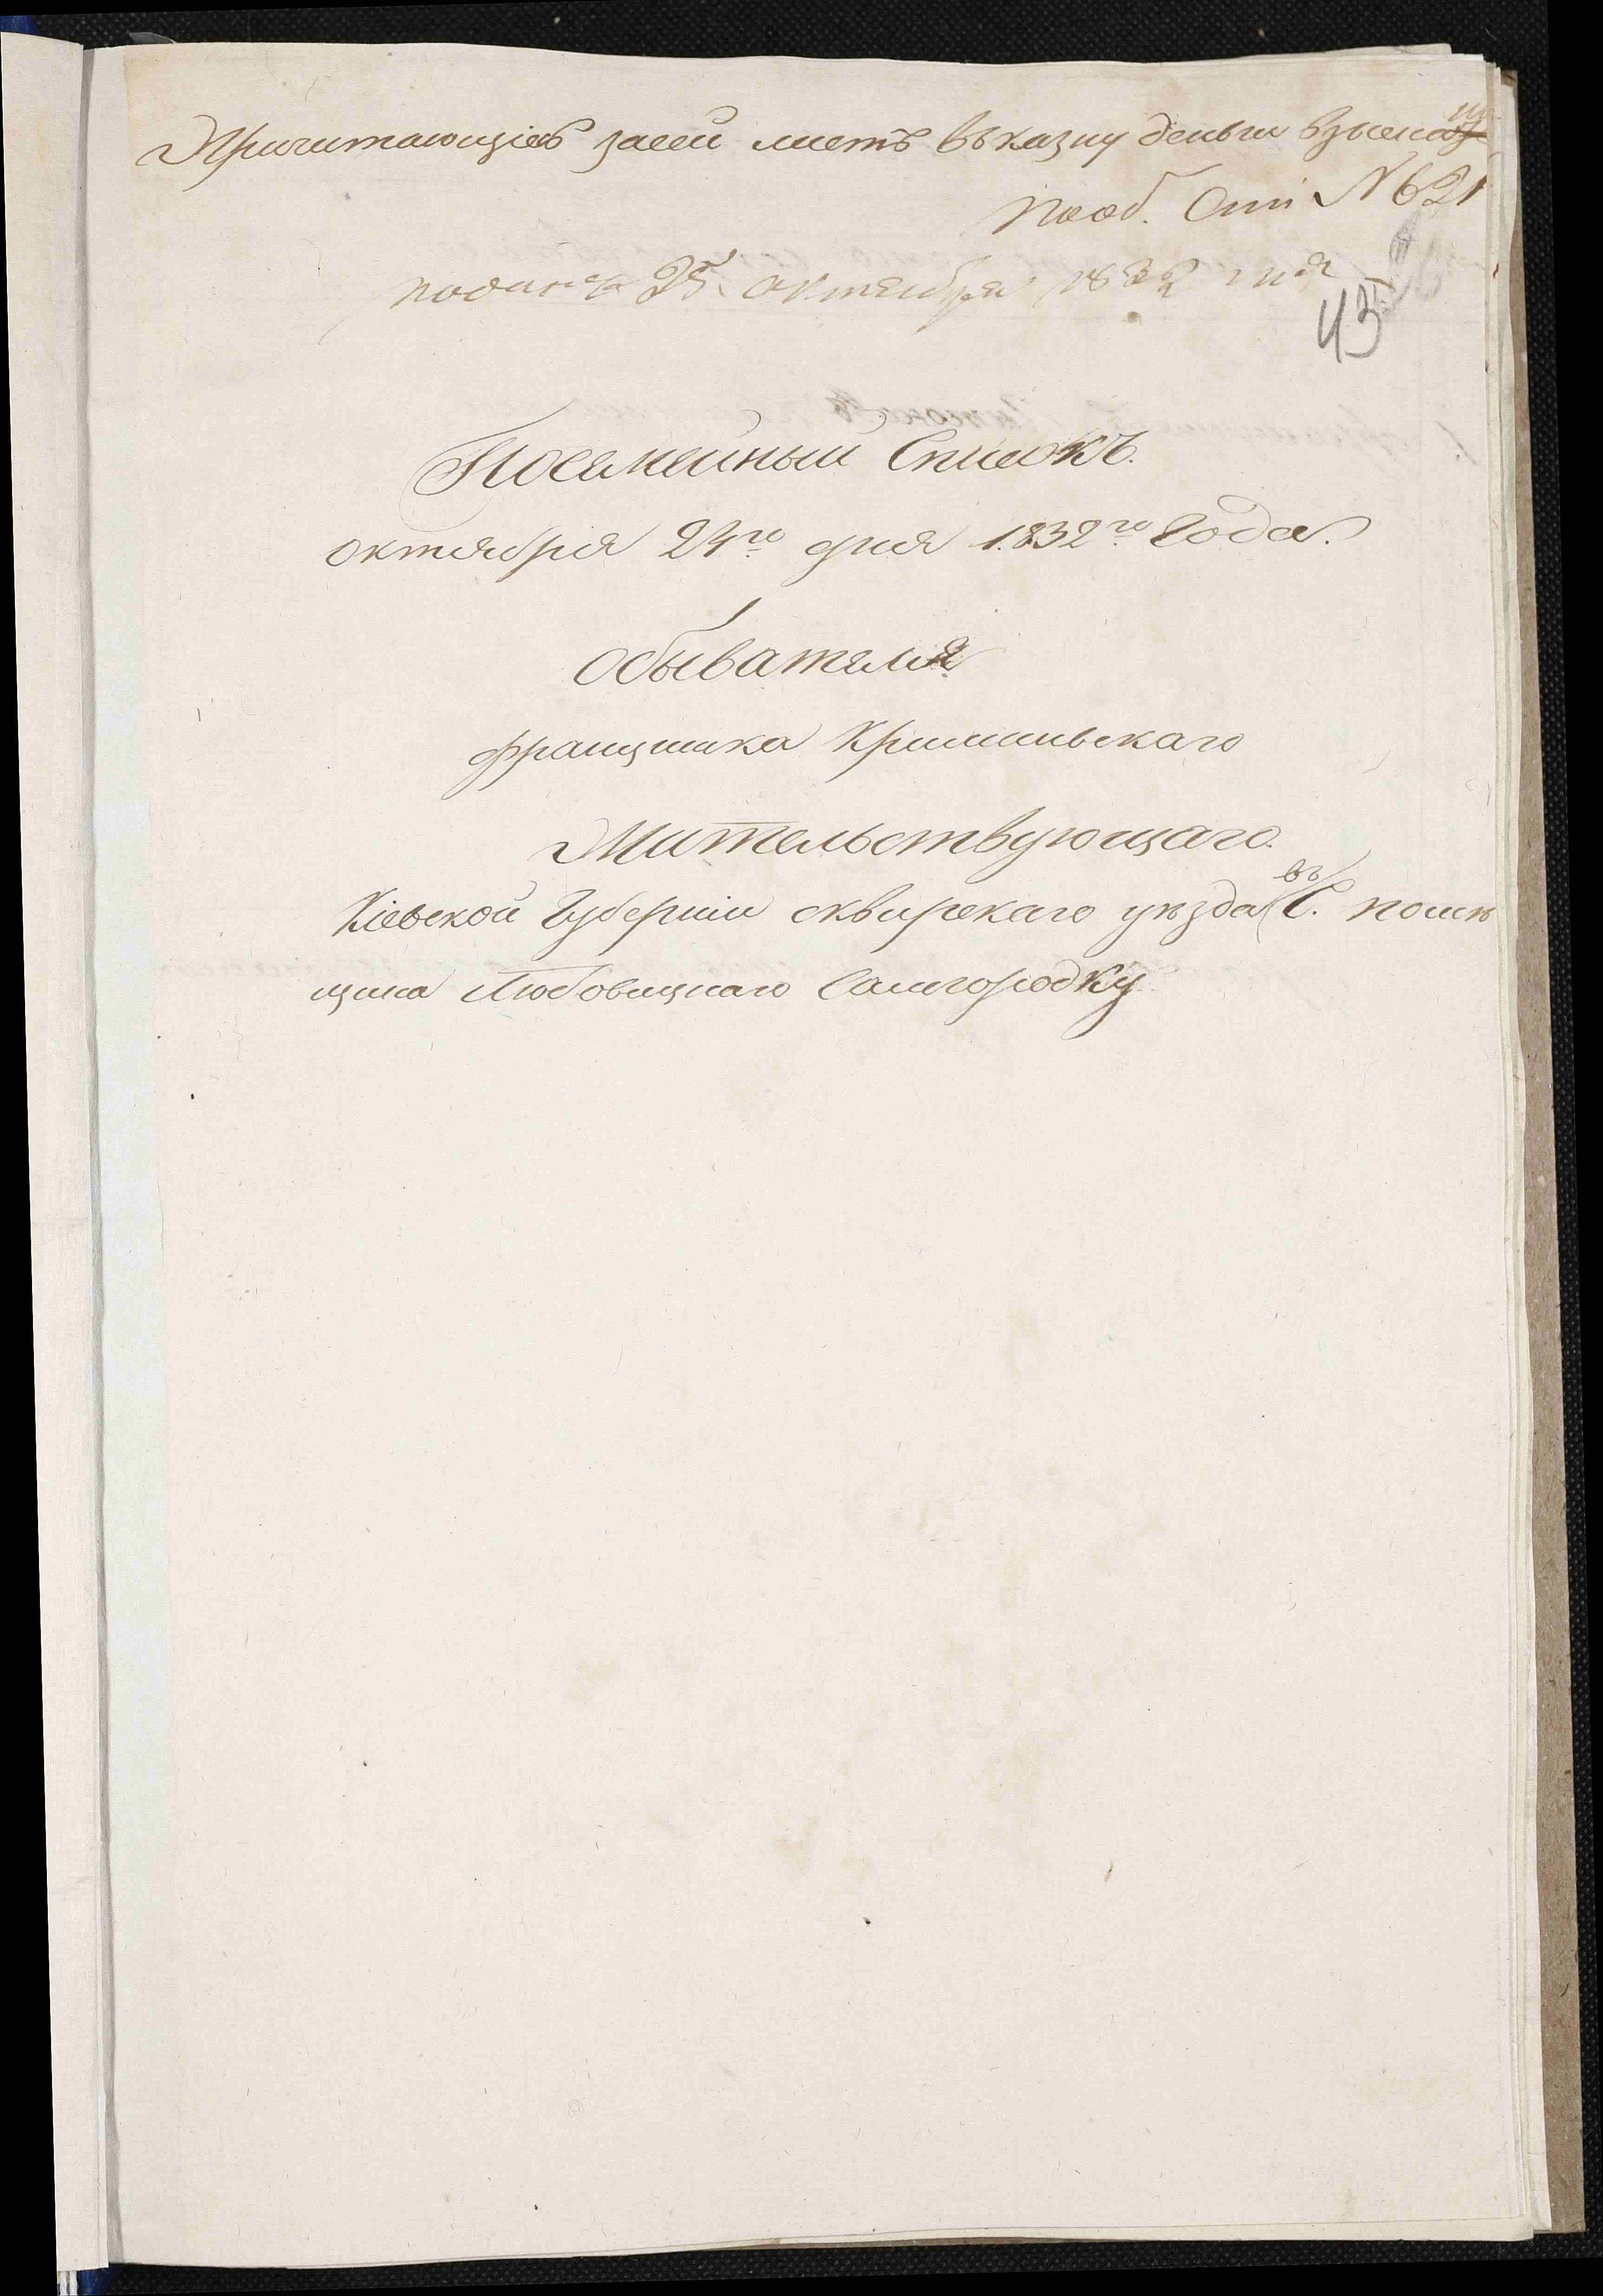 Причитающіесь засей листъ въ казну деньги взыска
по об. Ст. № 621
подан 25 октября 1832 года
43
Посемейный Списокъ.
октября 24го дня 1832го Года.
Обывателя
францишка
Жительствующаго.
Кіевской Губерніи сквирскаго уезда въ С. поме
щика Любовицкаго Самгородку